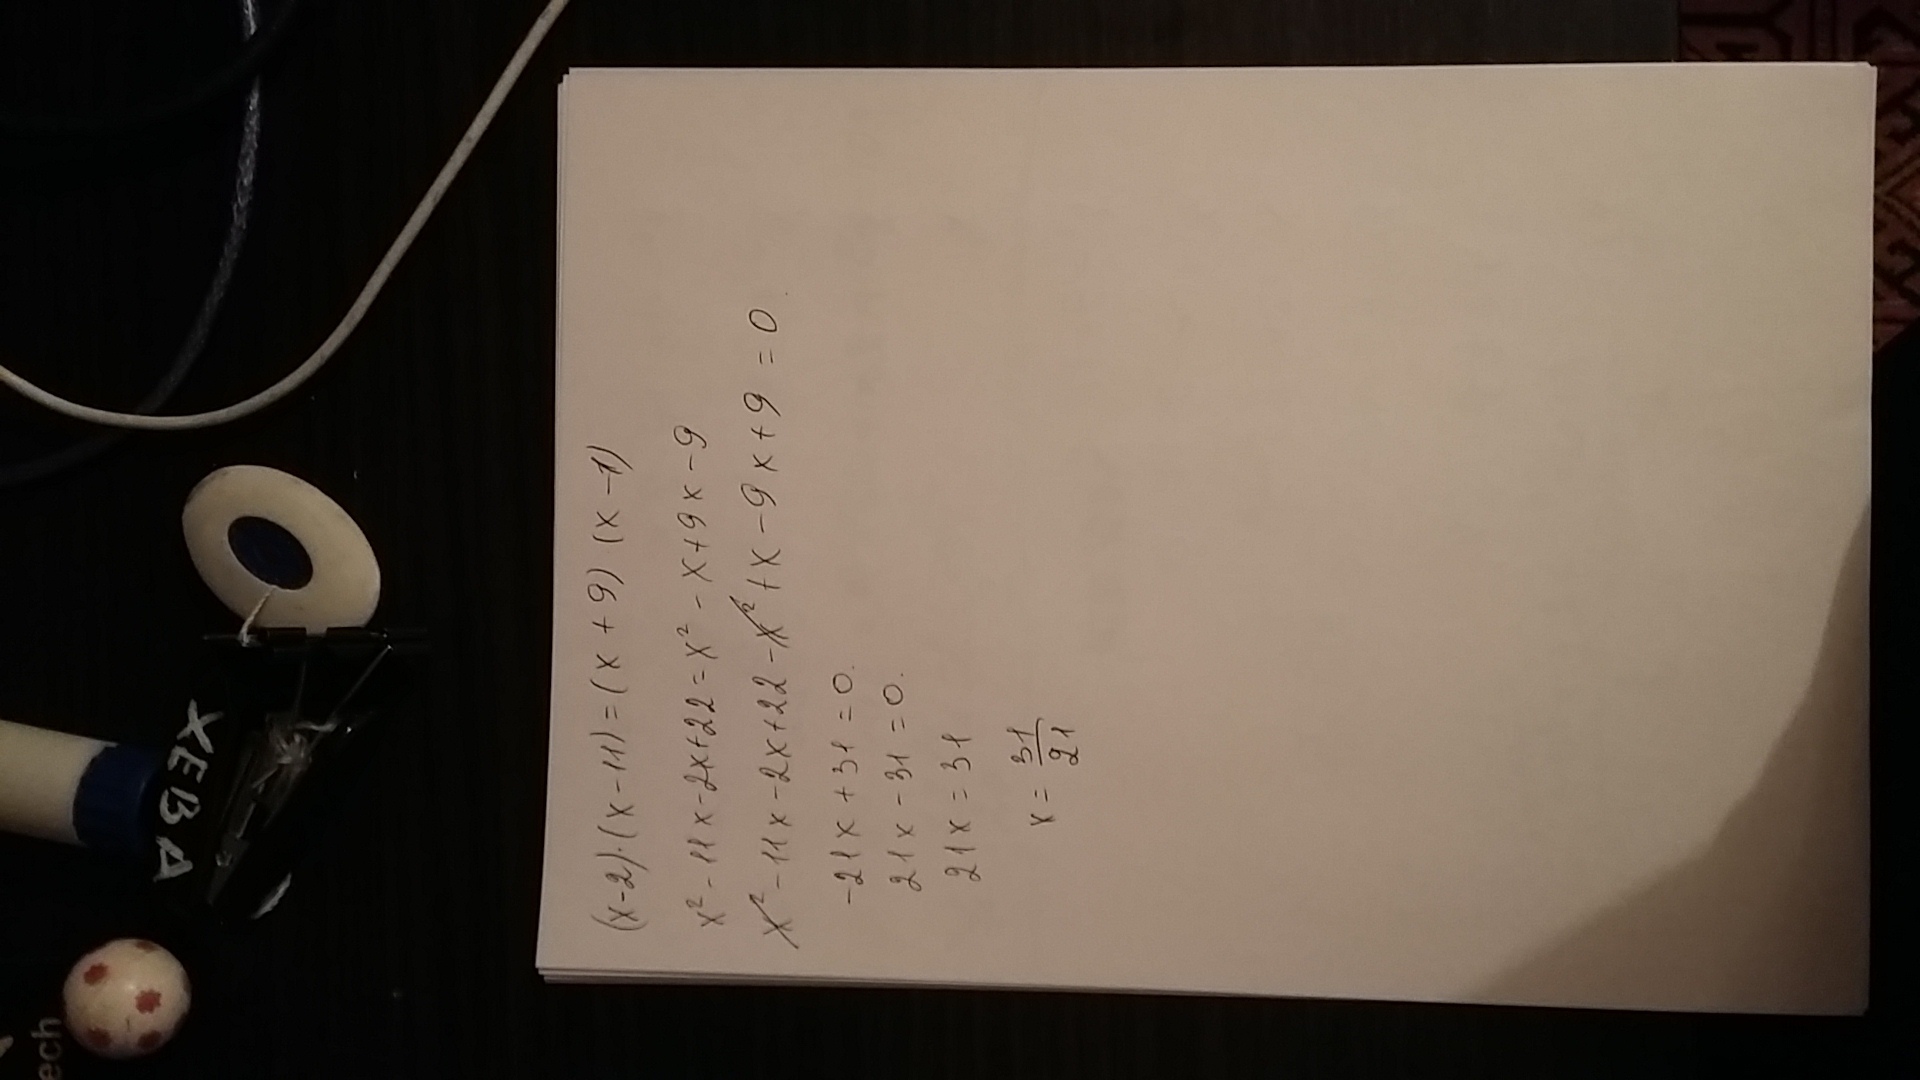 (x-2)·(x-11)=(x+9)(x-1)
x²-11x-2x+22=x²-x+9x-9
x²-11x-2x+22-x²+x-9x+9=0.
-21x+31=0.
21x-31=0.
21x=31
x=31/21
ХЕВА
ech